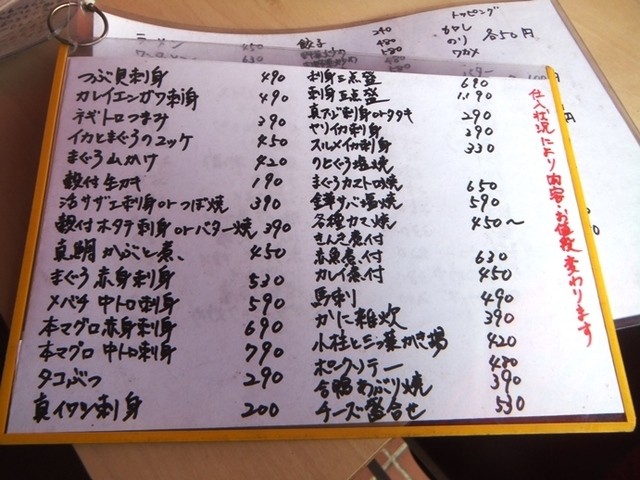 トッピング
ラーメン 450
餃子 240
480
580
モヤシ
のり
ワカメ
各50円
つぶ貝刺身 490
カレイエンガワ刺身 490
ネギトロつまみ 390
イカとまぐろのユッケ 450
まぐろ山かけ 420
殻付生カキ 190
活サザエ刺身orつぼ焼 390
殻付ホタテ刺身orバター焼 390
真鯛かぶと煮 450
まぐろ赤身刺身 530
メバチ中トロ刺身 590
本マグロ赤身刺身 690
本マグロ中トロ刺身 790
タコぶつ 290
真イワシ刺身 200
刺身三点盛 690
刺身五点盛 1,190
真アジ刺身orタタキ 290
ヤリイカ刺身 390
スルメイカ刺身 330
のどぐろ塩焼
まぐろカマトロ焼 650
金華サバ塩焼 590
各種カマ焼 450〜
きんき煮付
赤魚煮付 630
カレイ煮付 450
馬刺 490
かに雑炊 390
小柱と三つ葉かき揚 420
ポークソテー 480
合鴨あぶり焼 390
チーズ盛合せ 530
仕入状況により内容・お値段変わります